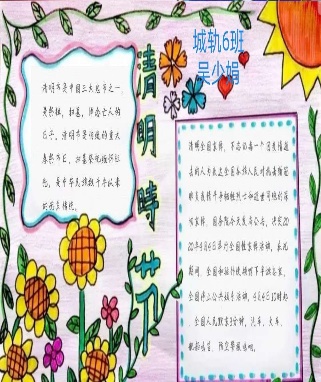 城轨6班
吴少娟
清明時节
清明节是中国三大鬼节之一,
是祭祖、扫墓、悼念亡人的
日子。清明节是传统的重大
春祭节日,扫墓祭祀缅怀祖
先,是中华民族数千年以来
的优良传统。
清明全国哀悼,不忘的每一个因疫情逝
去的人为表达全国各族人民对抗击新冠
肺炎疫情牺牲烈士和逝世同胞的深
切哀悼,国务院今天发布公告,决定20
20年4月4日举行全国性哀悼活动。在此
期间,全国和驻外使领馆下半旗志哀,
全国停止公共娱乐活动。4月4日10时起
,全国人民默哀3分钟,汽车、火车、
舰船鸣笛,防空警报鸣响。